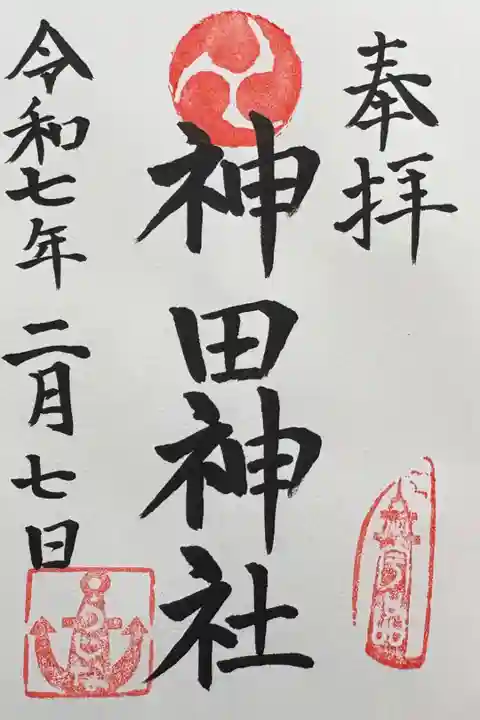 奉拝
神田神社
令和七年二月七日